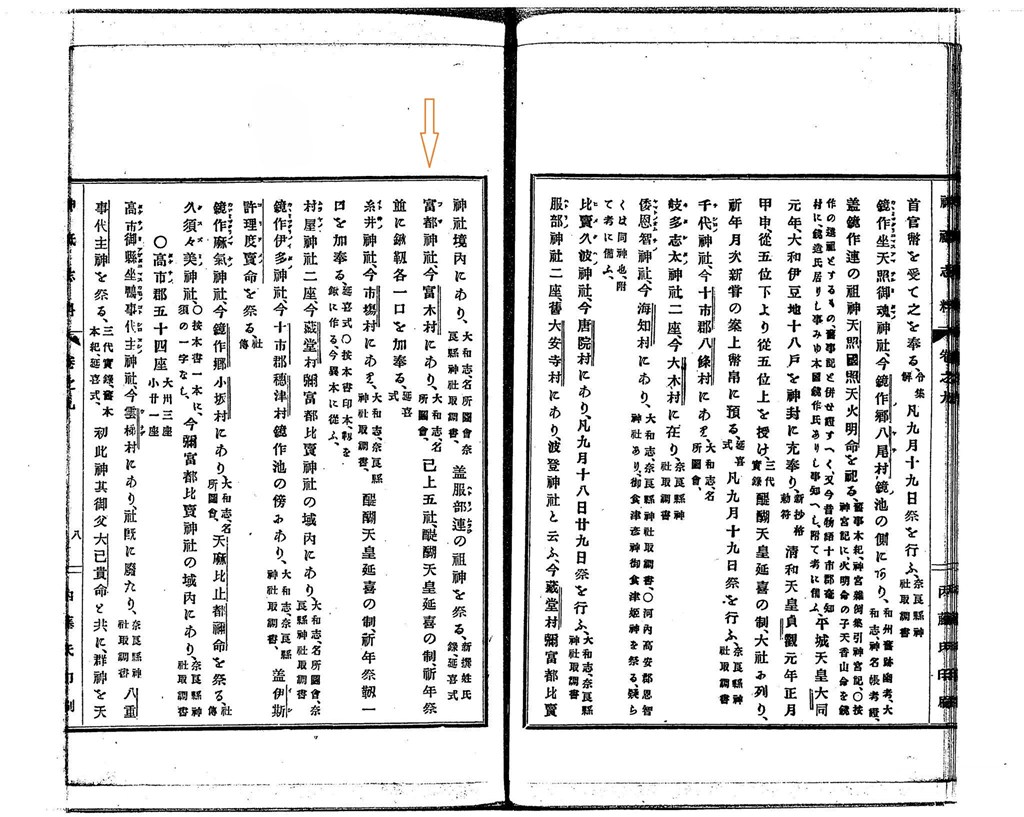 首官幣を受て之を奉る、令集解 凡九月十九日祭を行ふ、奈良縣神社取調書
鏡作坐天照御魂神社、今鏡作郷八尾村、鏡池の側にあり、和州舊跡幽考、大和志、神名帳考證、
盖鏡作連の祖神天照國照天火明命を祀る、舊事本紀、神宮雜例集引神宮記、〇按神宮記に、火明命の子天香山命を鏡
作の遠祖とするもの、舊事記と併せ證すへく、又今昔物語十市郡菴知村に鏡造氏居りし事みゆ、本國鏡作氏ありし事知へし、附て考に備ふ、平城天皇大同
元年、大和伊豆地十八戸を神封に充奉り、新抄格勅符 淸和天皇貞觀元年正月
甲申、從五位下より從五位上を授け、三代實錄 醍醐天皇延喜の制、大社に列り、
祈年月次新嘗の案上幣帛に預る、延喜式 凡九月十九日祭を行ふ、奈良縣神社取調書
千代神社、今十市郡八條村にあり、大和志、名所圖會、
岐多志太神社二座、今大木村に在り、奈良縣神社取調書
倭恩智神社、今海知村にあり、大和志、奈良縣神社取調書〇河内高安郡恩智神社あり、御食津彦神御食津姫神を祭る、疑らくは同神也、附て考に備ふ、
比賣久波神社、今唐院村にあり、凡九月十八日廿九日祭を行ふ、大和志、奈良縣神社取調書
服部神社二座、舊大安寺村にあり、波登神社と云ふ、今藏堂村彌富都比賣
神社境内にあり、大和志、名所圖會、奈良縣神社取調書、 盖服部連の祖神を祭る、新撰姓氏錄、延喜式
富都神社、今富木村にあり、大和志、名所圖會、 已上五社、醍醐天皇延喜の制、祈年祭
並に鍬靱各一口を加奉る、延喜式
糸井神社、今市塲村にあり、大和志、奈良縣神社取調書、 醍醐天皇延喜の制祈年祭靱一
口を加奉る、延喜式〇按本書印本、靱を鍬に作る、今異本に從ふ、
村屋神社二座、今藏堂村彌富都比賣神社の域内にあり、大和志、名所圖會、奈良縣神社取調書
鏡作伊多神社、今十市郡穗津村鏡作池の傍にあり、大和志、奈良縣神社取調書、 盖伊斯
許理度賣命を祭る、社傳
鏡作麻氣神社、今鏡作郷小坂村にあり、大和志、名所圖會、 天麻比止都禰命を祭る、社傳
久須々美神社、〇按本書一本に、須の一字なし、 今彌富都比賣神社の域内にあり、奈良縣神社取調書
〇高市郡五十四座 大卅三座 小廿一座
高市御縣坐鴨事代主神社、今雲梯村にあり、社旣に廢たり、奈良縣神社取調書 八重
事代主神を祭る、三代實錄、舊事本紀、延喜式、 初此神其御父大己貴命と共に、群神を天
八
卷之九